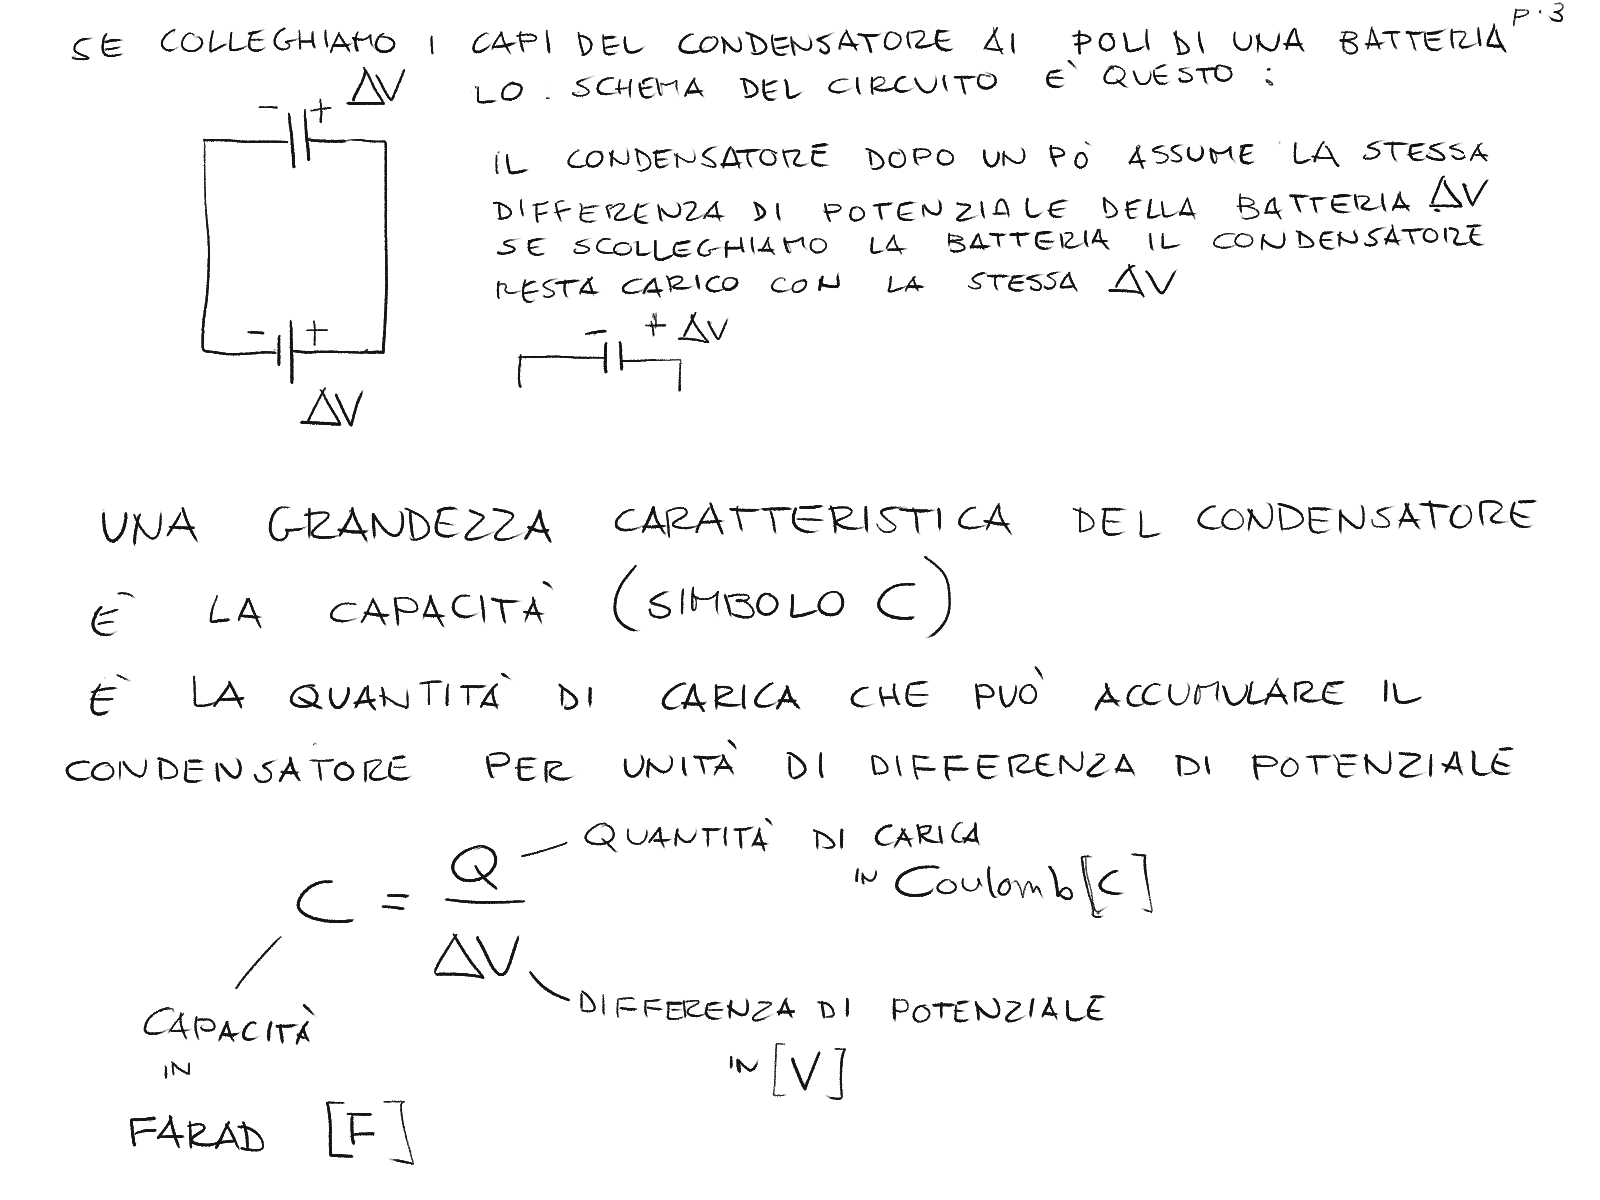 P.3
SE COLLEGHIAMO I CAPI DEL CONDENSATORE AI POLI DI UNA BATTERIA
LO SCHEMA DEL CIRCUITO E` QUESTO :
- + ΔV
IL CONDENSATORE DOPO UN PÒ ASSUME LA STESSA
DIFFERENZA DI POTENZIALE DELLA BATTERIA ΔV
SE SCOLLEGHIAMO LA BATTERIA IL CONDENSATORE
RESTA CARICO CON LA STESSA ΔV
- +
ΔV
- + ΔV
UNA GRANDEZZA CARATTERISTICA DEL CONDENSATORE
È LA CAPACITÀ (SIMBOLO C)
È LA QUANTITÀ DI CARICA CHE PUÒ ACCUMULARE IL
CONDENSATORE PER UNITÀ DI DIFFERENZA DI POTENZIALE
C = Q / ΔV
QUANTITÀ DI CARICA
IN Coulomb [C]
DIFFERENZA DI POTENZIALE
IN [V]
CAPACITÀ
IN
FARAD [F]